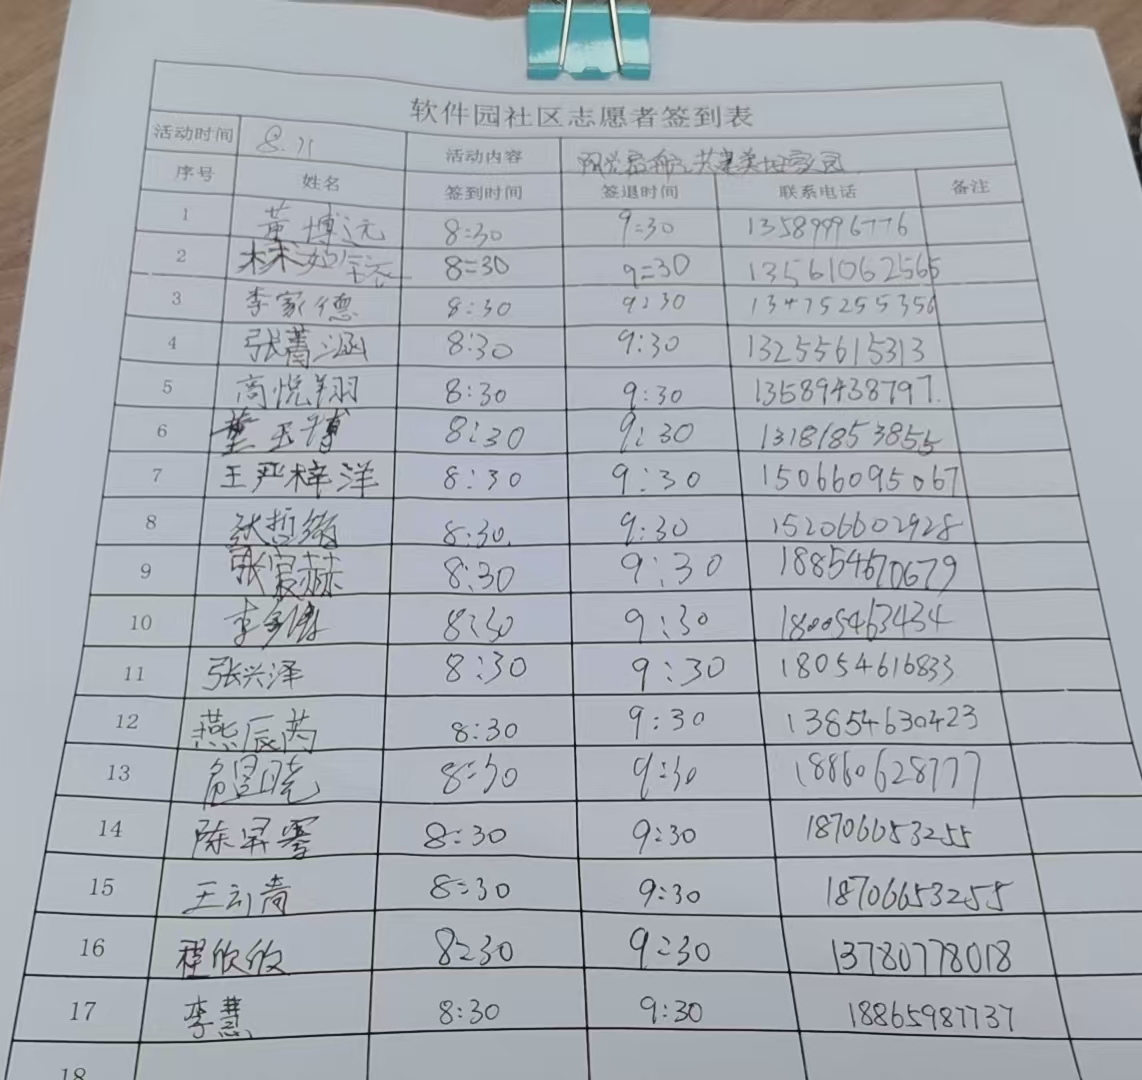 软件园社区志愿者签到表
活动时间 8.11 活动内容 共建美好家园
序号 姓名 签到时间 签退时间 联系电话 备注
1 董博远 8:30 9:30 13589996776
2 林如 8:30 9:30 13561062565
3 李家德 8:30 9:30 13475255356
4 张菁涵 8:30 9:30 13255615313
5 高悦翔 8:30 9:30 13589438797
6 董玉博 8:30 9:30 13181853855
7 王严梓洋 8:30 9:30 15066095067
8 张哲 8:30 9:30 15206602928
9 张宸赫 8:30 9:30 18854670679
10 李 8:30 9:30 18005463434
11 张兴泽 8:30 9:30 18054616833
12 燕辰芮 8:30 9:30 13854630423
13 8:30 9:30 18860628777
14 陈昇霖 8:30 9:30 18706653255
15 王青 8:30 9:30 18706653255
16 程欣欣 8:30 9:30 13780778018
17 李慧 8:30 9:30 18865987737
18